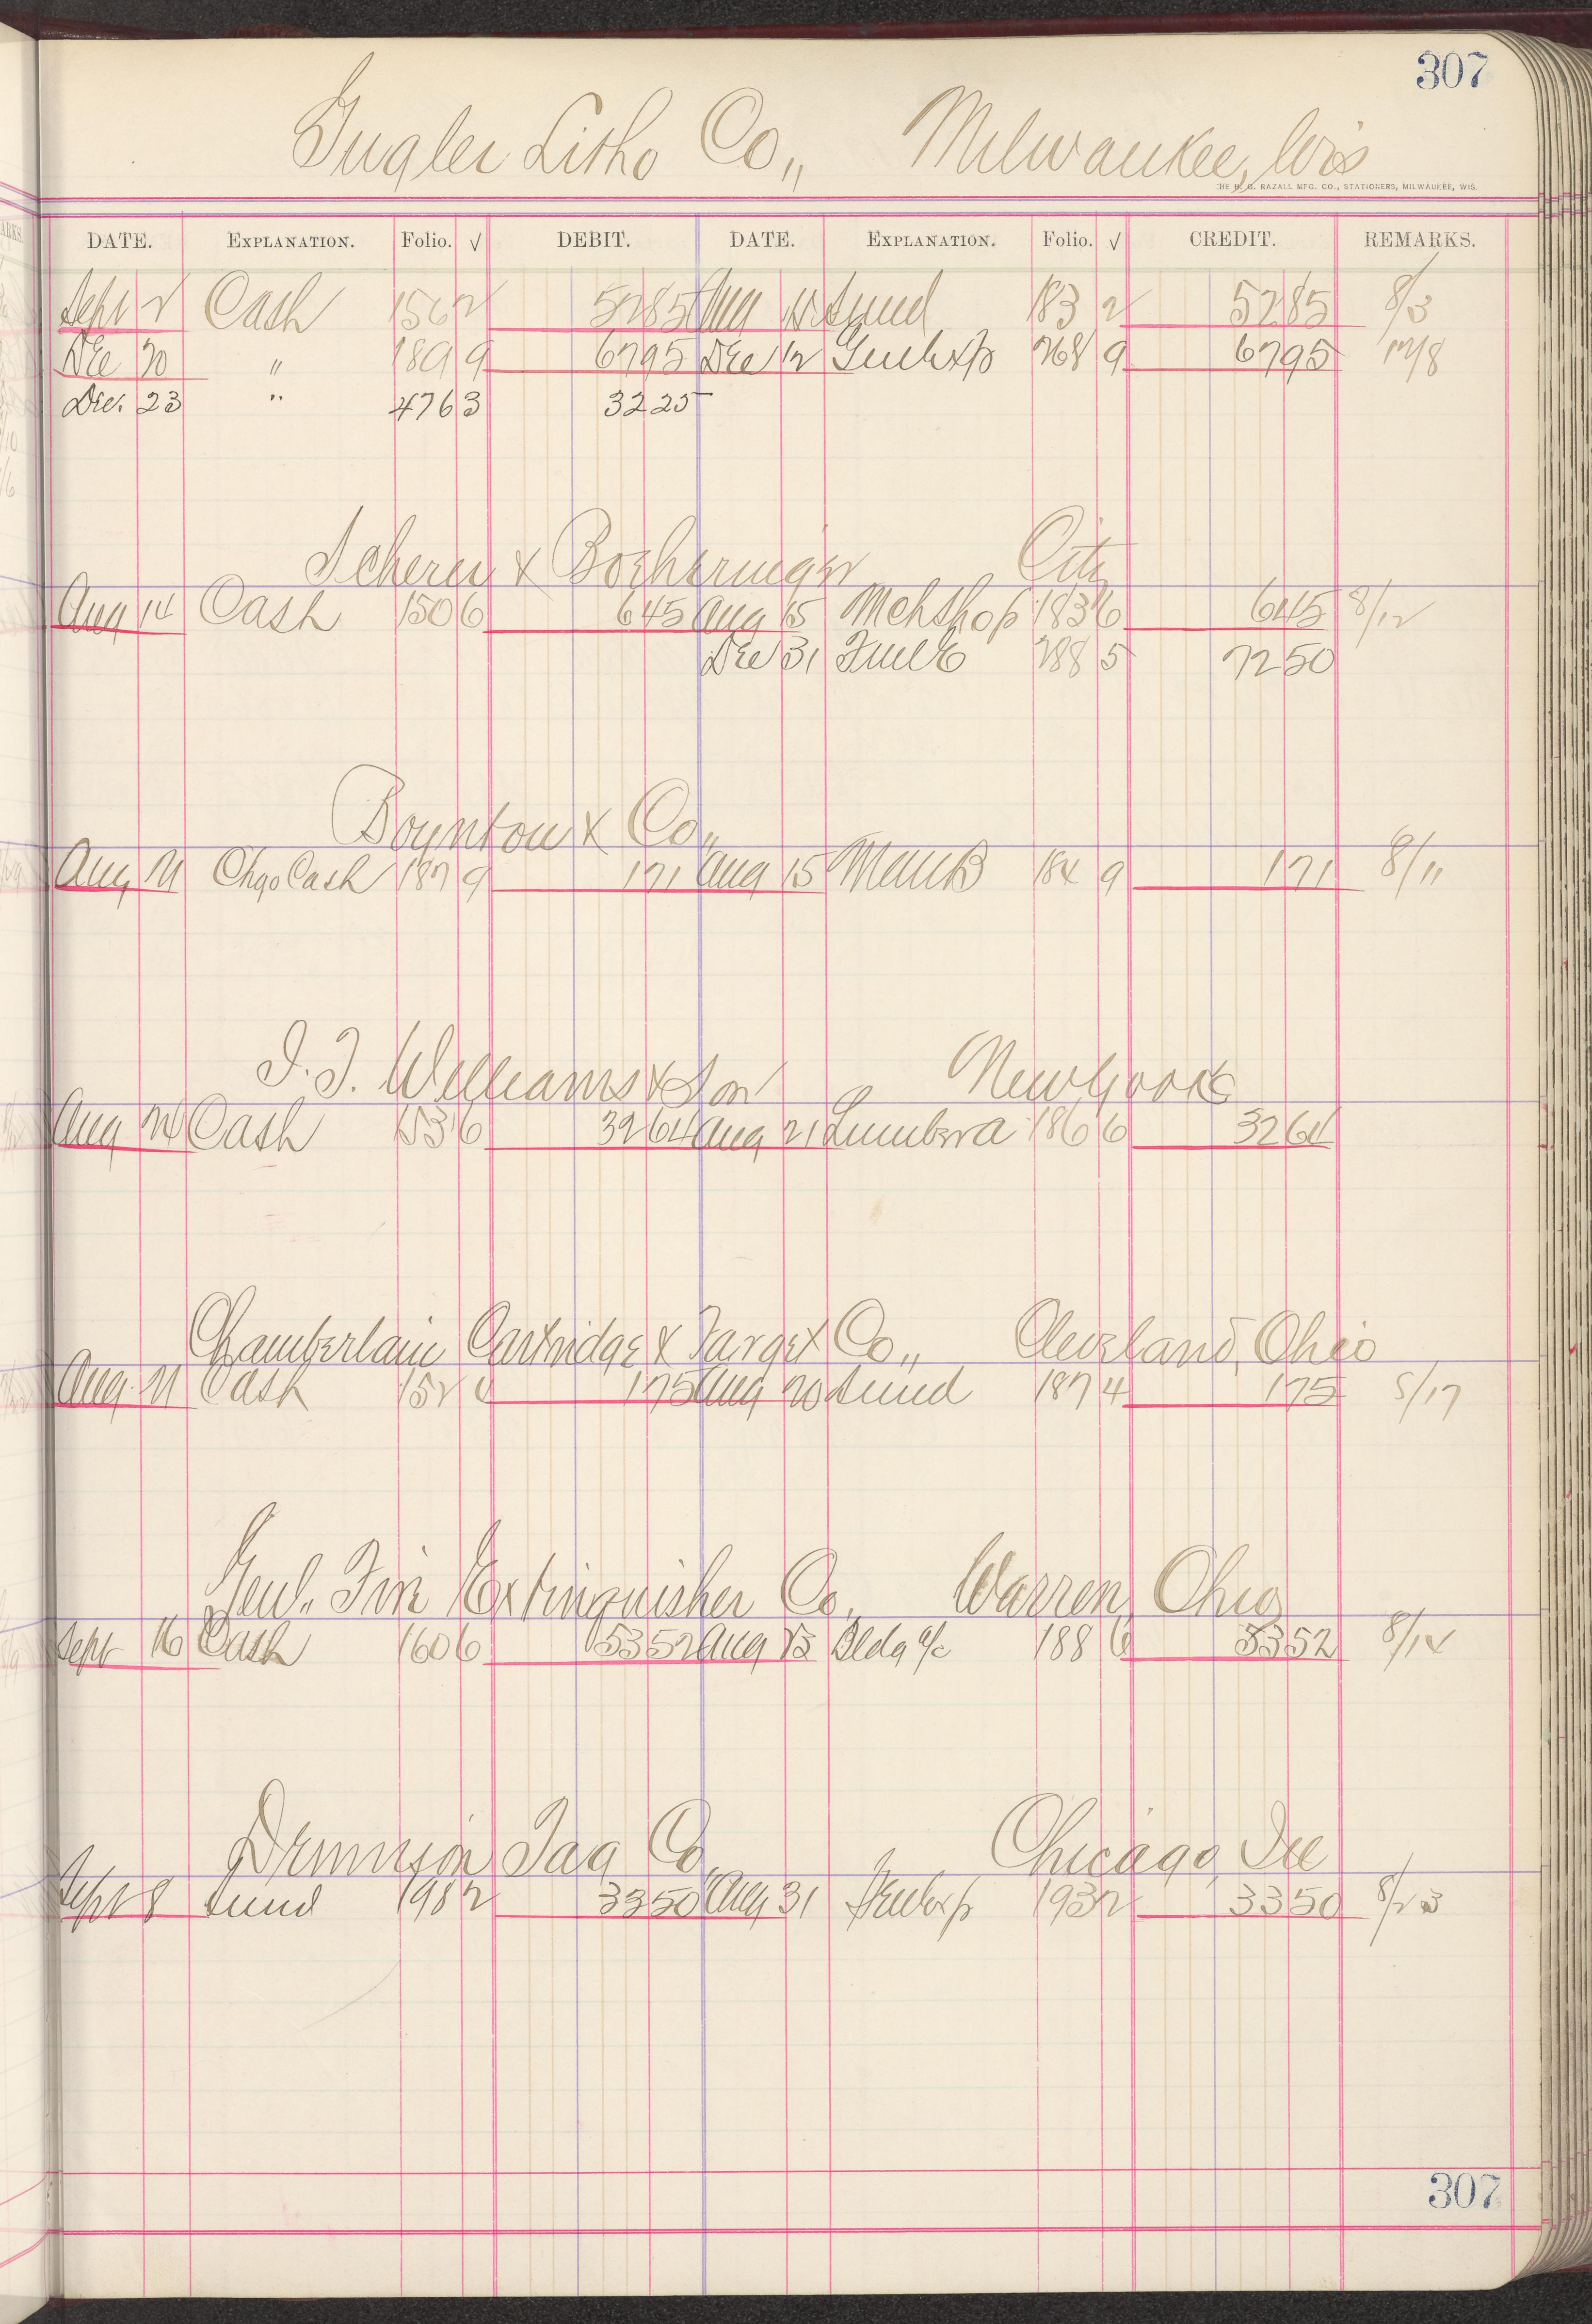 307
Gugler Litho Co,, Milwaukee, Wis
THE H. G. RAZALL MFG. CO., STATIONERS, MILWAUKEE, WIS.
DATE. EXPLANATION. Folio. √ DEBIT. DATE. EXPLANATION. Folio. √ CREDIT. REMARKS.
Sept 2 Cash 156 2 5285 Aug Sund 183 2 5285 8/3
Dec 20 " 189 9 6795 Dec 12 268 9 6795 12/8
Dec. 23 " 476 3 3225
Scherer & City
Aug 14 Cash 150 6 645 Aug 15 Mchshop 183 6 645 8/12
Dec 31 288 5 7250
Boynton & Co,,
Aug 21 Chgo Cash 187 9 171 Aug 15 184 9 171 8/11
I. T. Williams & Son New York
Aug Cash 153 6 3264 Aug 21 Lumber a 186 6 3264
Chamberlain Cartridge & Target Co,, Cleveland, Ohio
Aug. 21 Cash 152 175 Aug 20 Sund 187 4 175 8/17
Genl. Fire Extinguisher Co, Warren, Ohio
Sept 16 Cash 160 6 5352 Aug 15 Bldg a/c 188 6 5352 8/12
Dennison Tag Co, Chicago, Ill
Sept 8 Sund 198 2 3350 Aug 31 193 2 3350 8/23
307